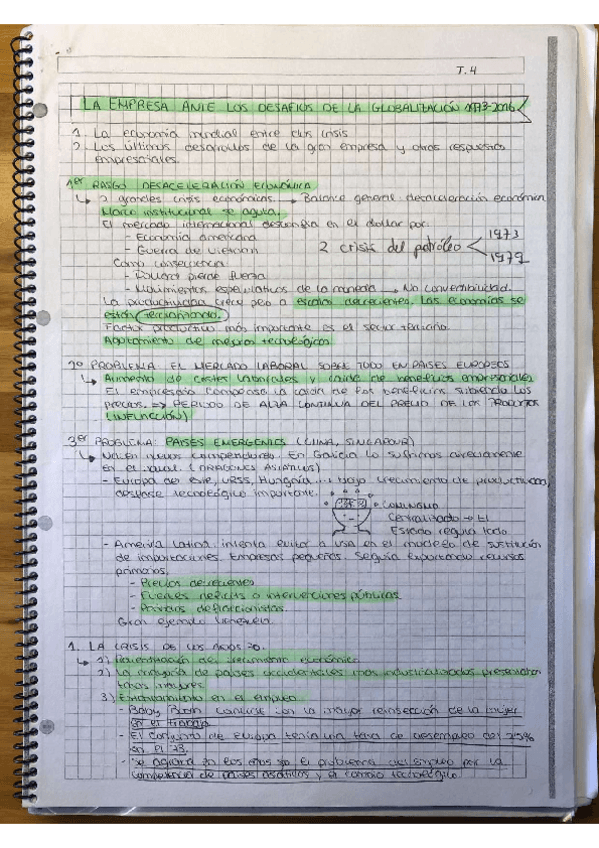 T.4
LA EMPRESA ANTE LOS DESAFIOS DE LA GLOBALIZACIÓN 1973-2016
1. La economía mundial entre dos crisis
2. Los últimos desarrollos de la gran empresa y otras respuestas
empresariales.
1er RASGO DESACELERACIÓN ECONÓMICA
↳ 2 grandes crisis económicas. → Balance general: desaceleración económica
Marco institucional se agota.
El mercado internacional desconfía en el dollar por:
- Economía americana
- Guerra de Vietnam
2 crisis del petróleo
1973
1979
Como consecuencia:
- Dollar pierde fuerza
- Movimientos especulativos de la moneda → No convertibilidad.
La productividad crece pero a escalas decrecientes. Las economías se
están terciarizando.
Factor productivo más importante es el sector terciario.
Agotamiento de mejoras tecnológicas
2º PROBLEMA: EL MERCADO LABORAL SOBRE TODO EN PAÍSES EUROPEOS
↳ Aumento de costes laborales y caída de beneficios empresariales
El empresario compensa la caída de los beneficios subiendo los
precios → PERIODO DE ALZA CONTINUA DEL PRECIO DE LOS PRODUCTOS
(INFLACCIÓN)
3er PROBLEMA: PAISES EMERGENTES (CHINA, SINGAPOUR)
↳ Nacen nuevos competidores. En Galicia lo sufrimos directamente
en el naval. (DRAGONES ASIÁTICOS)
- Europa del Este, URSS, Hungría... bajo crecimiento de productividad,
desfase tecnológico importante.
COMUNISMO
Centralizado → El
Estado regula todo
- América Latina: intenta evitar a USA en el modelo de sustitución
de importaciones. Empresas pequeñas. Seguía exportando recursos
primarios.
- Precios decrecientes
- Fuertes déficits o intervenciones públicas
- Políticas deflaccionistas
Gran ejemplo Venezuela.
1. LA CRISIS DE LOS AÑOS 70.
↳ 1) Ralentización del crecimiento económico
2) La mayoría de países occidentales más industrializados presentaban
tasas mayores
3) en el empleo
- Baby Boom continúe con la mayor reinserción de la mujer
en el trabajo
- El conjunto de Europa tenía una tasa de desempleo del 2'5%
en el 73.
- Se agrava en los años 90 el problema del empleo por la
competencia de países asiáticos y el cambio tecnológico.